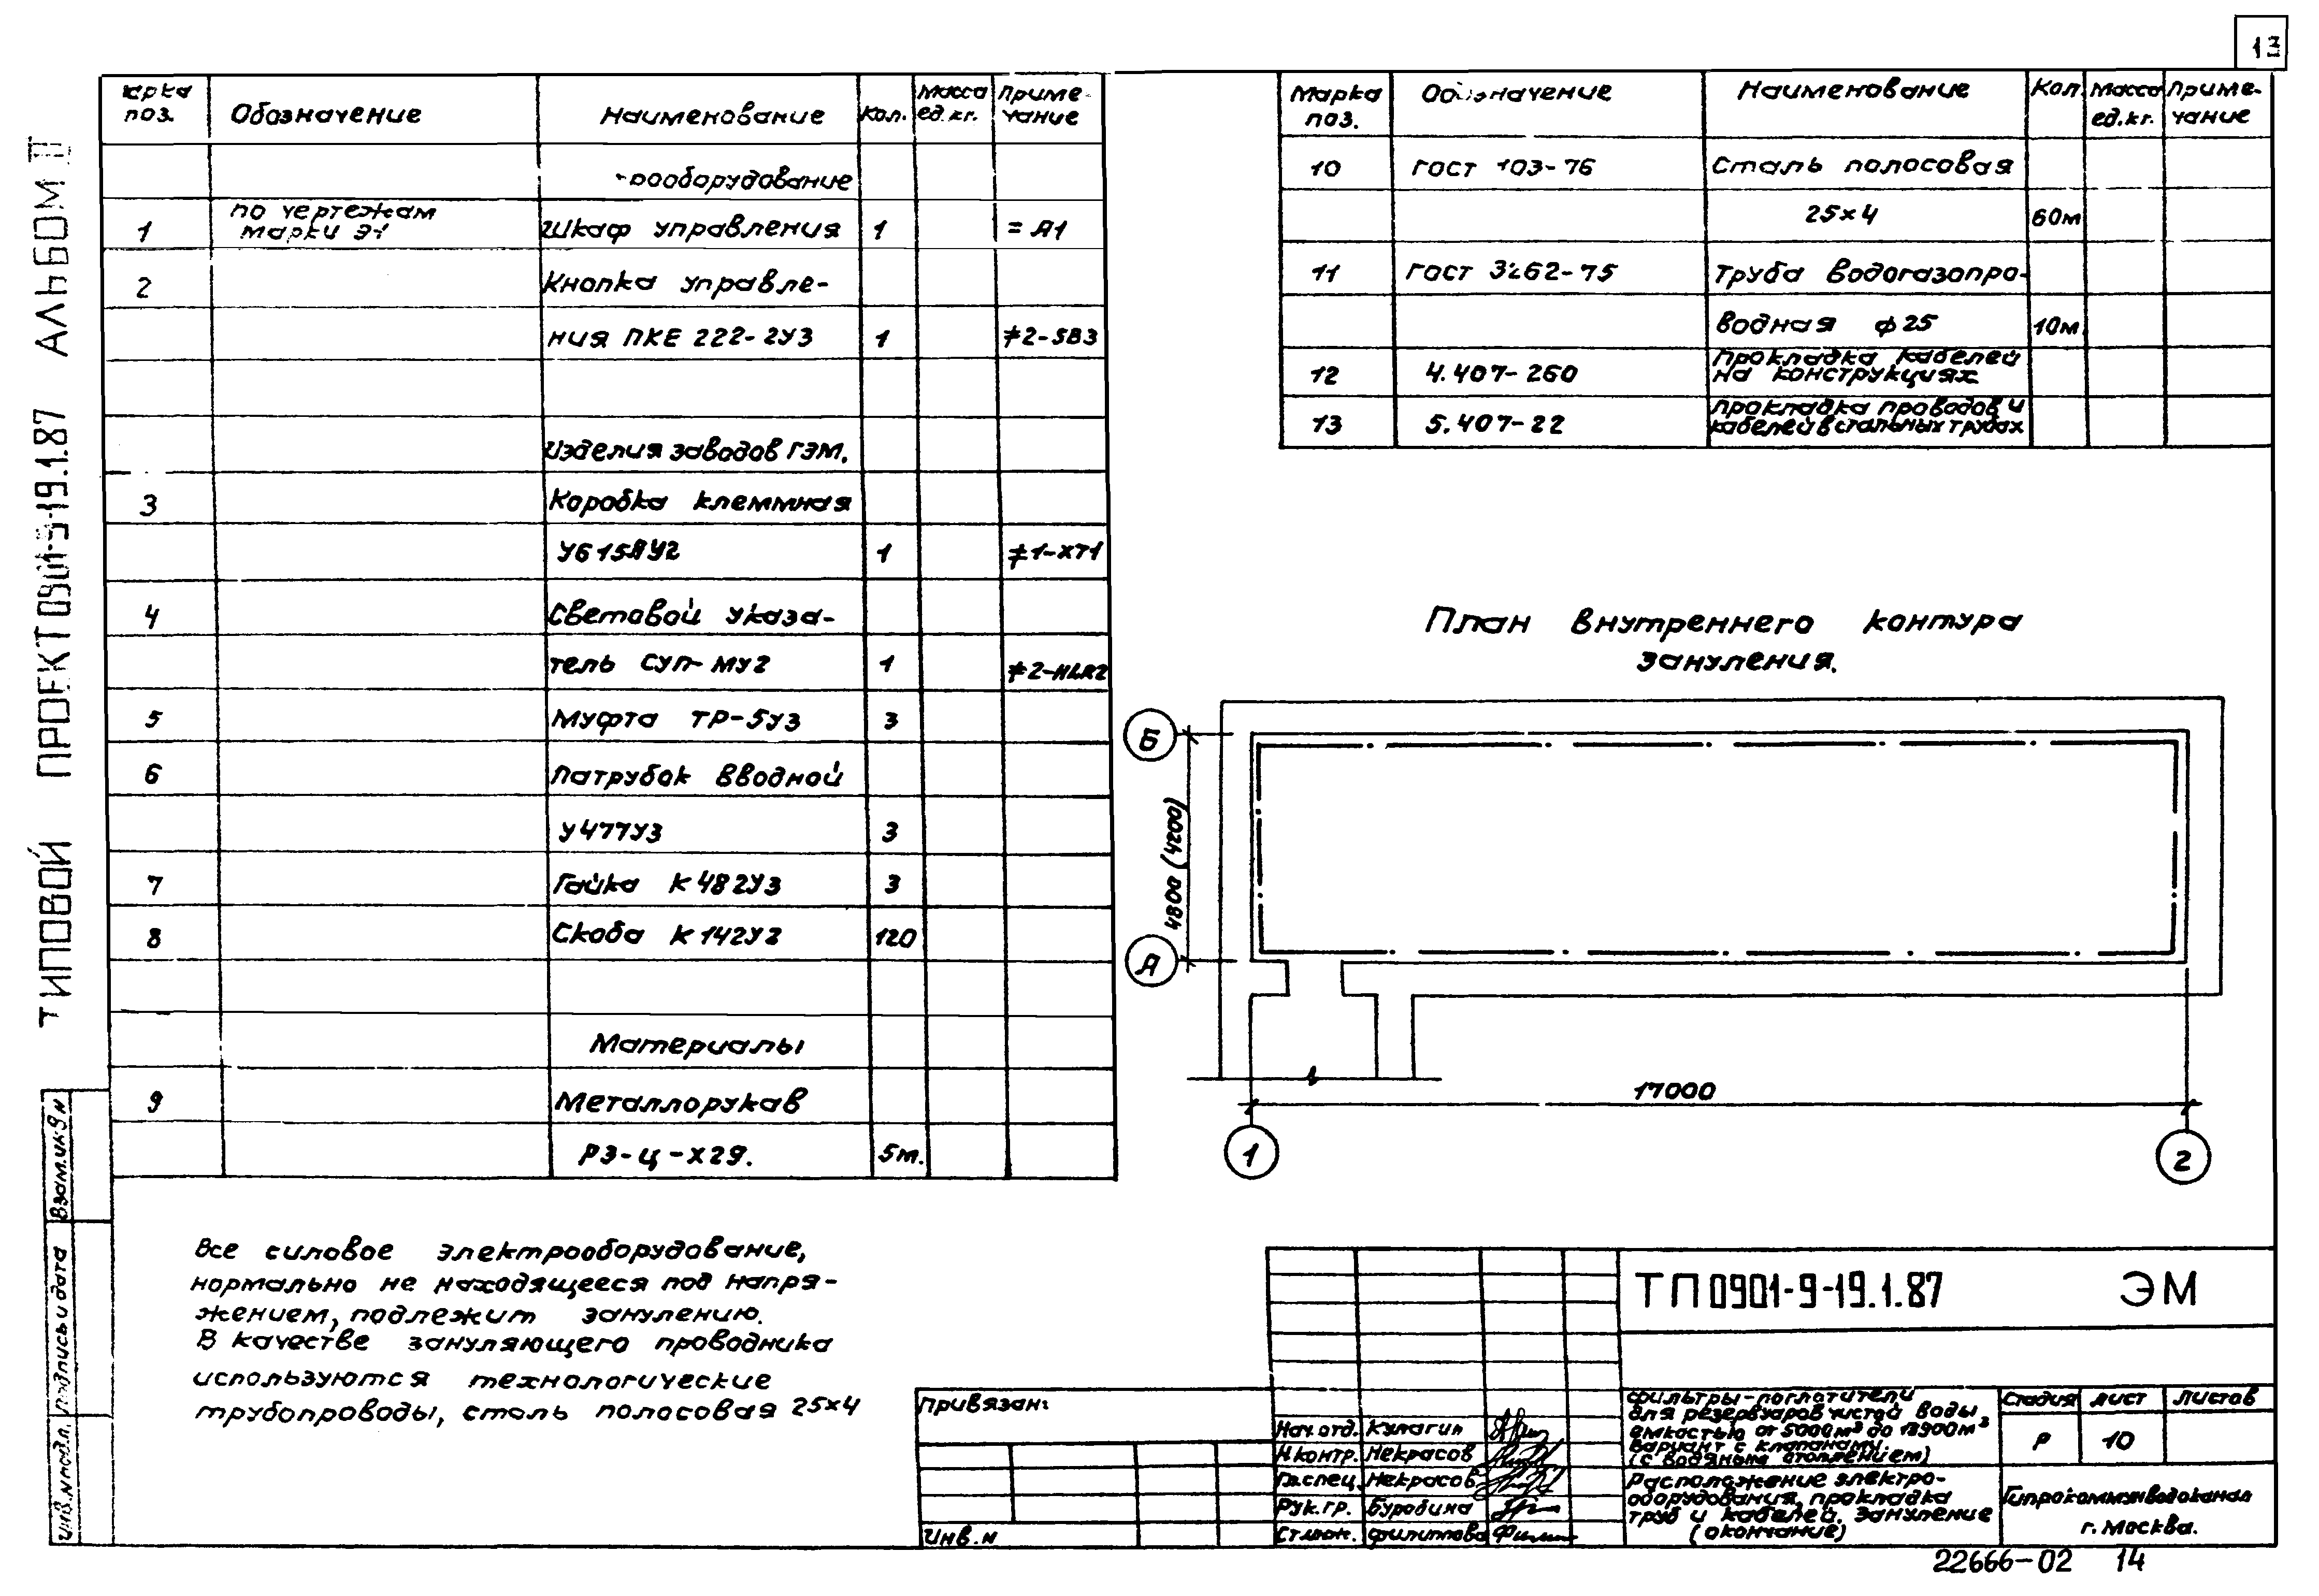 13
ТИПОВОЙ ПРОЕКТ 0901-9-19.1.87 АЛЬБОМ II
Марка поз. Обозначение Наименование Кол. Масса ед.кг. Примечание
рооборудование
1 по чертежам марки ЭМ Шкаф управления 1 =А1
2 Кнопка управле-
ния ПКЕ 222-2У3 1 ≠2-SB3
Изделия заводов ГЭМ.
3 Коробка клеммная
У615АУ2 1 ≠1-XT1
4 Световой указа-
тель СУП-МУ2 1 ≠2-HLR2
5 Муфта ТР-5У3 3
6 Патрубок вводной
У477У3 3
7 Гайка К482У3 3
8 Скоба К142У2 120
Материалы
9 Металлорукав
РЗ-Ц-Х29. 5м.
Марка поз. Обозначение Наименование Кол. Масса ед.кг. Примечание
10 ГОСТ 103-76 Сталь полосовая
25×4 60м
11 ГОСТ 3262-75 Труба водогазопро-
водная ф25 10м
12 4.407-260 Прокладка кабелей
на конструкциях
13 5.407-22 Прокладка проводов и
кабелей в стальных трубах
План внутреннего контура
зануления.
Б
А
4800 (4200)
17000
1
2
Все силовое электрооборудование,
нормально не находящееся под напря-
жением, подлежит занулению.
В качестве зануляющего проводника
используются технологические
трубопроводы, сталь полосовая 25×4
Взам.инв.N
Подпись и дата
Инв.N подл.
Привязан:
Инв.N
ТП 0901-9-19.1.87 ЭМ
Нач.отд. Кулагин
Н.контр. Некрасов
Гл.спец. Некрасов
Рук.гр. Буробина
Ст.инж. Филиппова
Фильтры-поглотители
для резервуаров чистой воды
емкостью от 5000м³ до
Вариант с клапанами.
(с водяным отоплением)
Стадия Лист Листов
Р 10
Расположение электро-
оборудования, прокладка
труб и кабелей. Зануление
(окончание)
Гипрокоммунводоканал
г. Москва.
22666-02 14